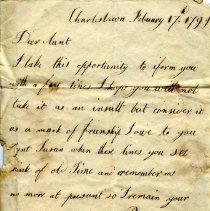 Charlestown February 17th 1799
Dear Aunt
I take this opportunity to iform you
with a few lines I hope you will not
take it as an insult but consider it
as a mark of friunship I owe to you
Aynt Susan when these lines you see
mark of de Time and remember me
no more at pusent so I remain your